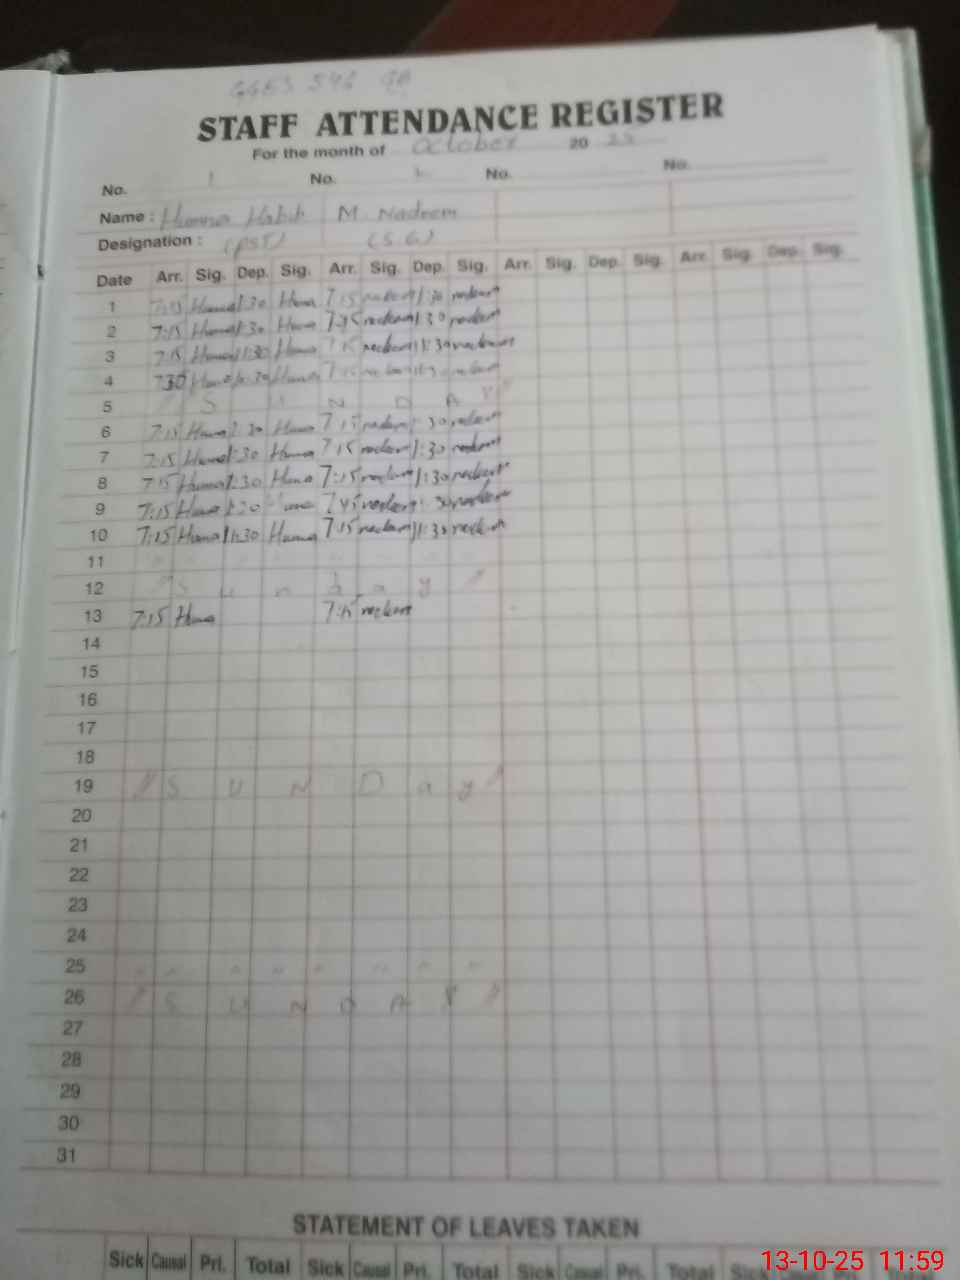 GGES 546 GB
STAFF ATTENDANCE REGISTER
For the month of October 20 25
No. 1 No. No. No.
Name : Humna Habib M. Nadeem
Designation : (PST) (S.G)
Date Arr. Sig. Dep. Sig. Arr. Sig. Dep. Sig. Arr. Sig. Dep. Sig. Arr. Sig. Dep. Sig.
1 7:15 Huma 1:30 Huma 7:15 nadeem 1:30 nadeem
2 7:15 Huma 1:30 Huma 7:15 nadeem 1:30 nadeem
3 7:15 Huma 11:30 Huma 7:15 nadeem 11:30 nadeem
4 730 Huma Huma 7:15
5 S U N D A Y
6 7:15 Huma 1:30 Huma 7:15 nadeem 1:30 nadeem
7 7:15 Huma 1:30 Huma 7:15 nadeem 1:30 nadeem
8 7:15 Huma 1:30 Huma 7:15 nadeem 1:30 nadeem
9 7:15 Huma 1:30 Huma 7:15 nadeem 1:30 nadeem
10 7:15 Huma 11:30 Huma 7:15 nadeem 11:30 nadeem
11
12 // S u n d a y //
13 7:15 Huma 7:15 nadeem
14
15
16
17
18
19 // S U N D a y //
20
21
22
23
24
25
26 // S U N D A Y //
27
28
29
30
31
STATEMENT OF LEAVES TAKEN
Sick Causal Pri. Total Sick Causal Pri. Total Sick Causal Pri. Total Sick
13-10-25 11:59